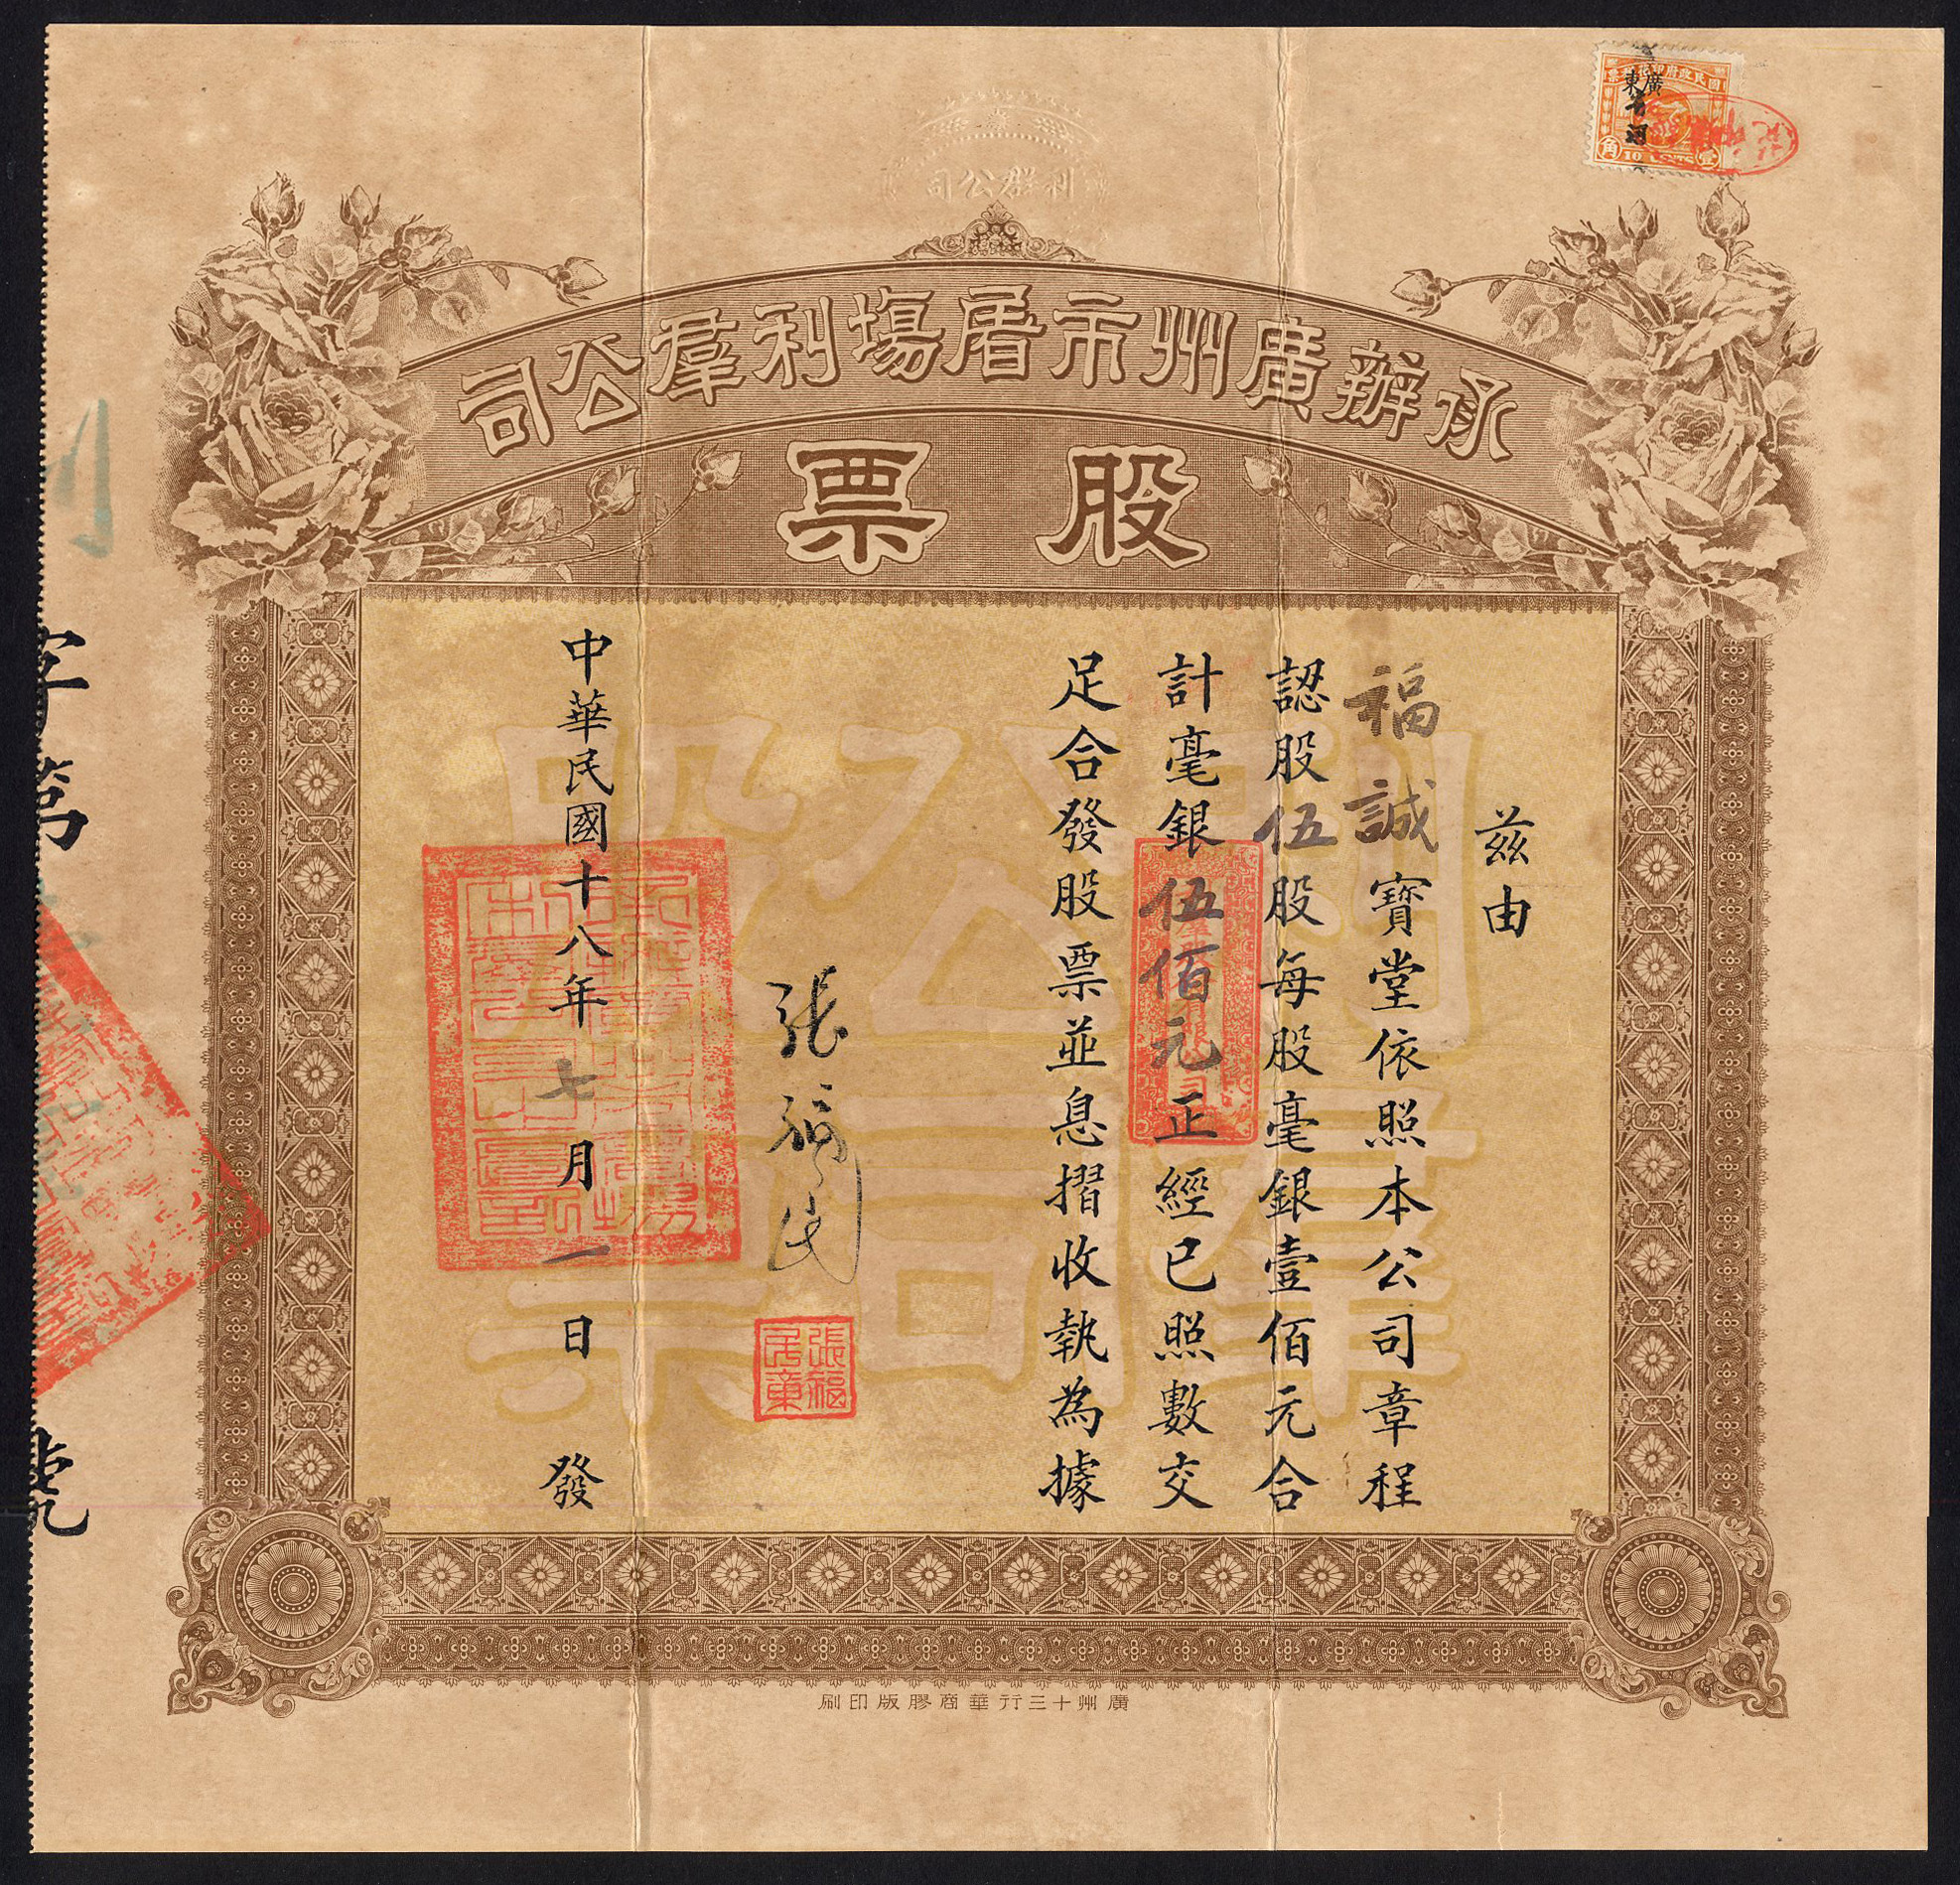 承辦廣州市屠場利羣公司
股票
茲由
福誠寶堂依照本公司章程
認股伍股每股毫銀壹佰元合
計毫銀伍佰元正經已照數交
足合發股票並息摺收執為據
張福
中華民國十八年七月一日發
字第
號
利群公司
國民政府印花稅票
廣東
壹角
10 CENTS
利羣公司股票
廣州十三行華商膠版印刷